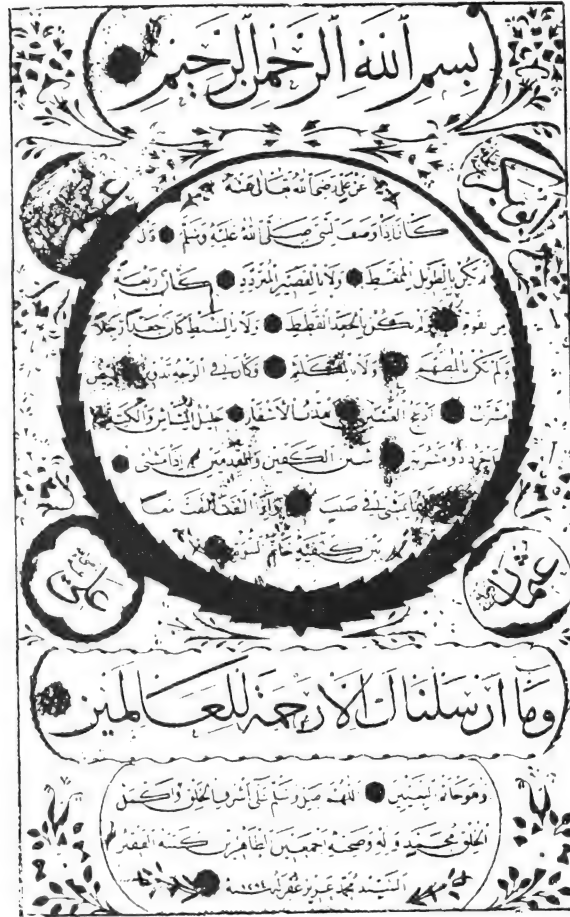 بسم الله الرحمن الرحيم
ابوبكر
عمر
عن علي رضى الله تعالى عنه
كان اذا وصف النبي صلى الله عليه وسلم قال
لم يكن بالطويل الممغط ولا بالقصير المتردد وكان ربعة
من القوم ولم يكن بالجعد القطط ولا بالسبط كان جعدا رجلا
ولم يكن بالمطهم ولا بالمكلثم وكان في الوجه تدوير ابيض
مشرب ادعج العينين اهدب الاشفار جليل المشاش والكتد
اجرد ذو مسربة شثن الكفين والقدمين اذا مشى
كانما يمشى في صبب واذا التفت التفت معا
بين كتفيه خاتم النبوة
عثمان
على
وما ارسلناك الا رحمة للعالمين
وهو خاتم النبيين اللهم صل وسلم على اشرف الخلق واكمل
الخلق محمد واله وصحبه اجمعين الطاهرين كتبه الفقير
السيد محمد غفر سنة